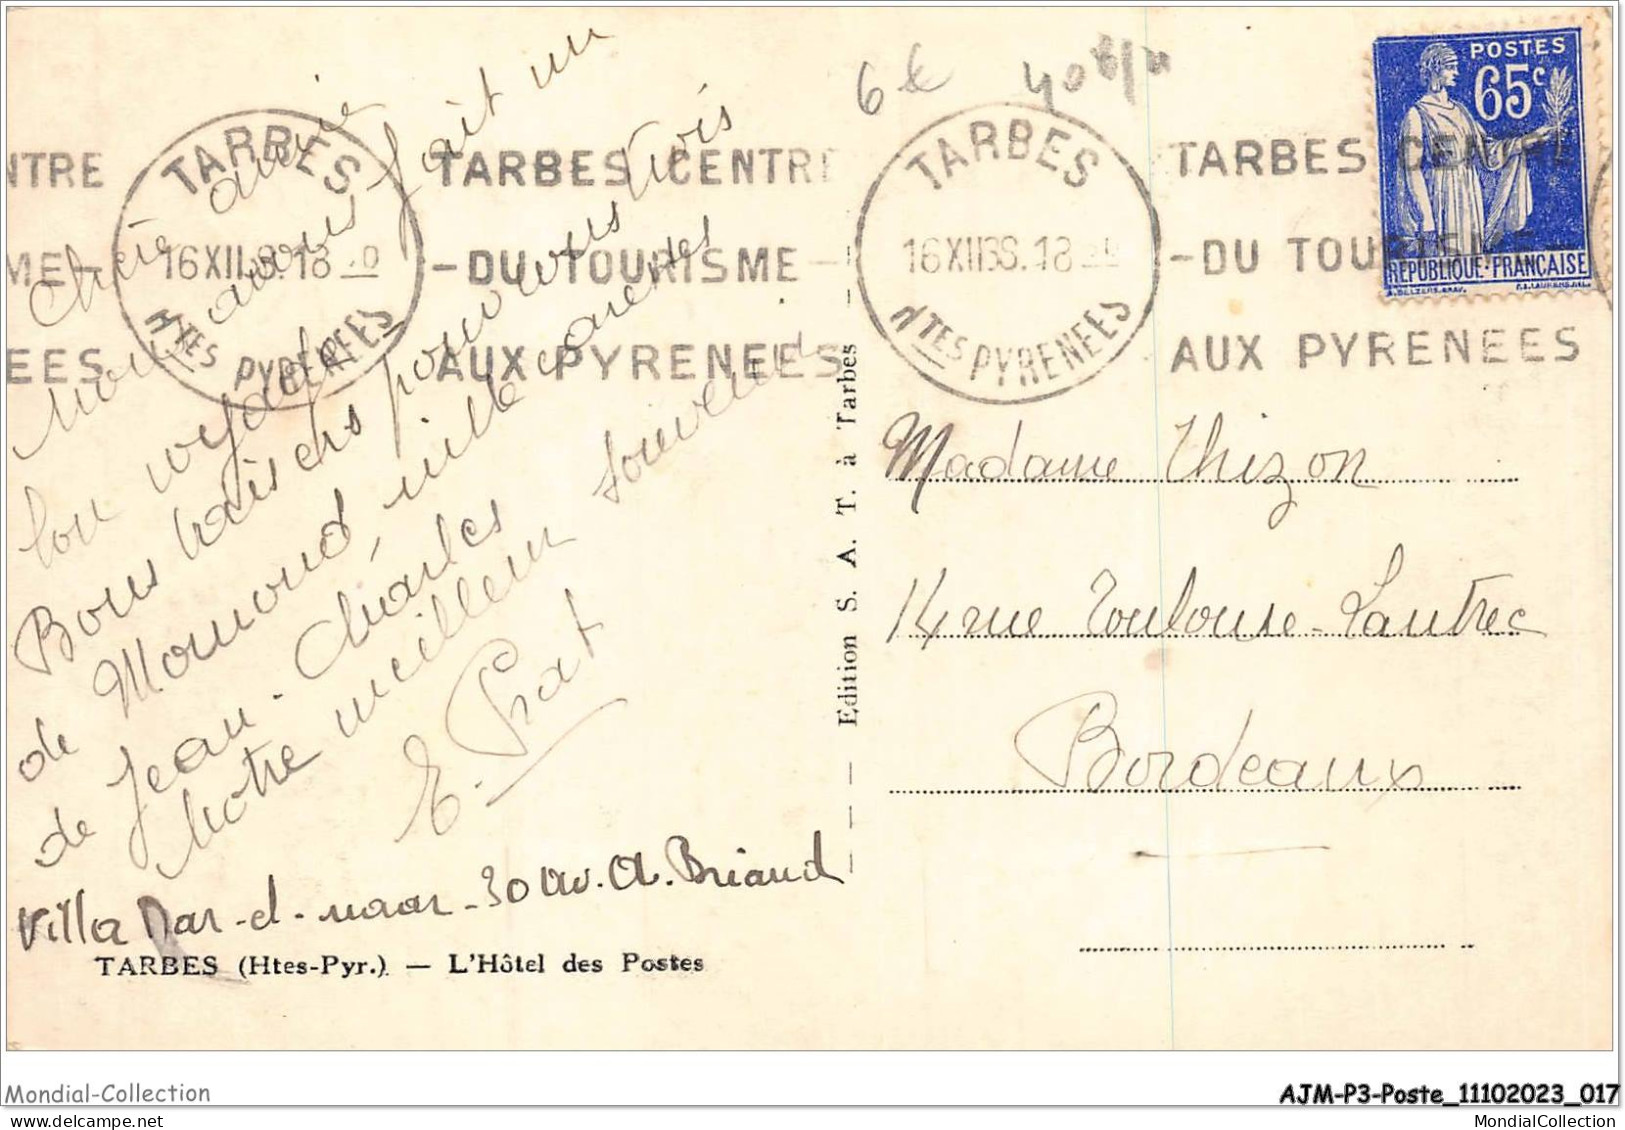 6€
40 f/u
POSTES
65c
RÉPUBLIQUE-FRANÇAISE
NTRE
ME-
EES
TARBES
16 XII 38. 18
Htes PYRENEES
TARBES CENTRE
-DU TOURISME-
AUX PYRENEES
TARBES
16 XII 38. 18
Htes PYRENEES
TARBES CENTRE
-DU TOURISME-
AUX PYRENEES
Chère amie
Nous avons fait un
bon voyage
Bons baisers pour vous trois
de Momond, mille caresses
de Jean-Charles
Notre meilleur souvenir
E. Prat
Villa Dar-el-naar-30 Av. A. Briand
TARBES (Htes-Pyr.) — L'Hôtel des Postes
Edition S. A. T. à Tarbes
Madame Thizon
14 rue Toulouse-Lautrec
Bordeaux
Mondial-Collection
AJM-P3-Poste_11102023_017
MondialCollection